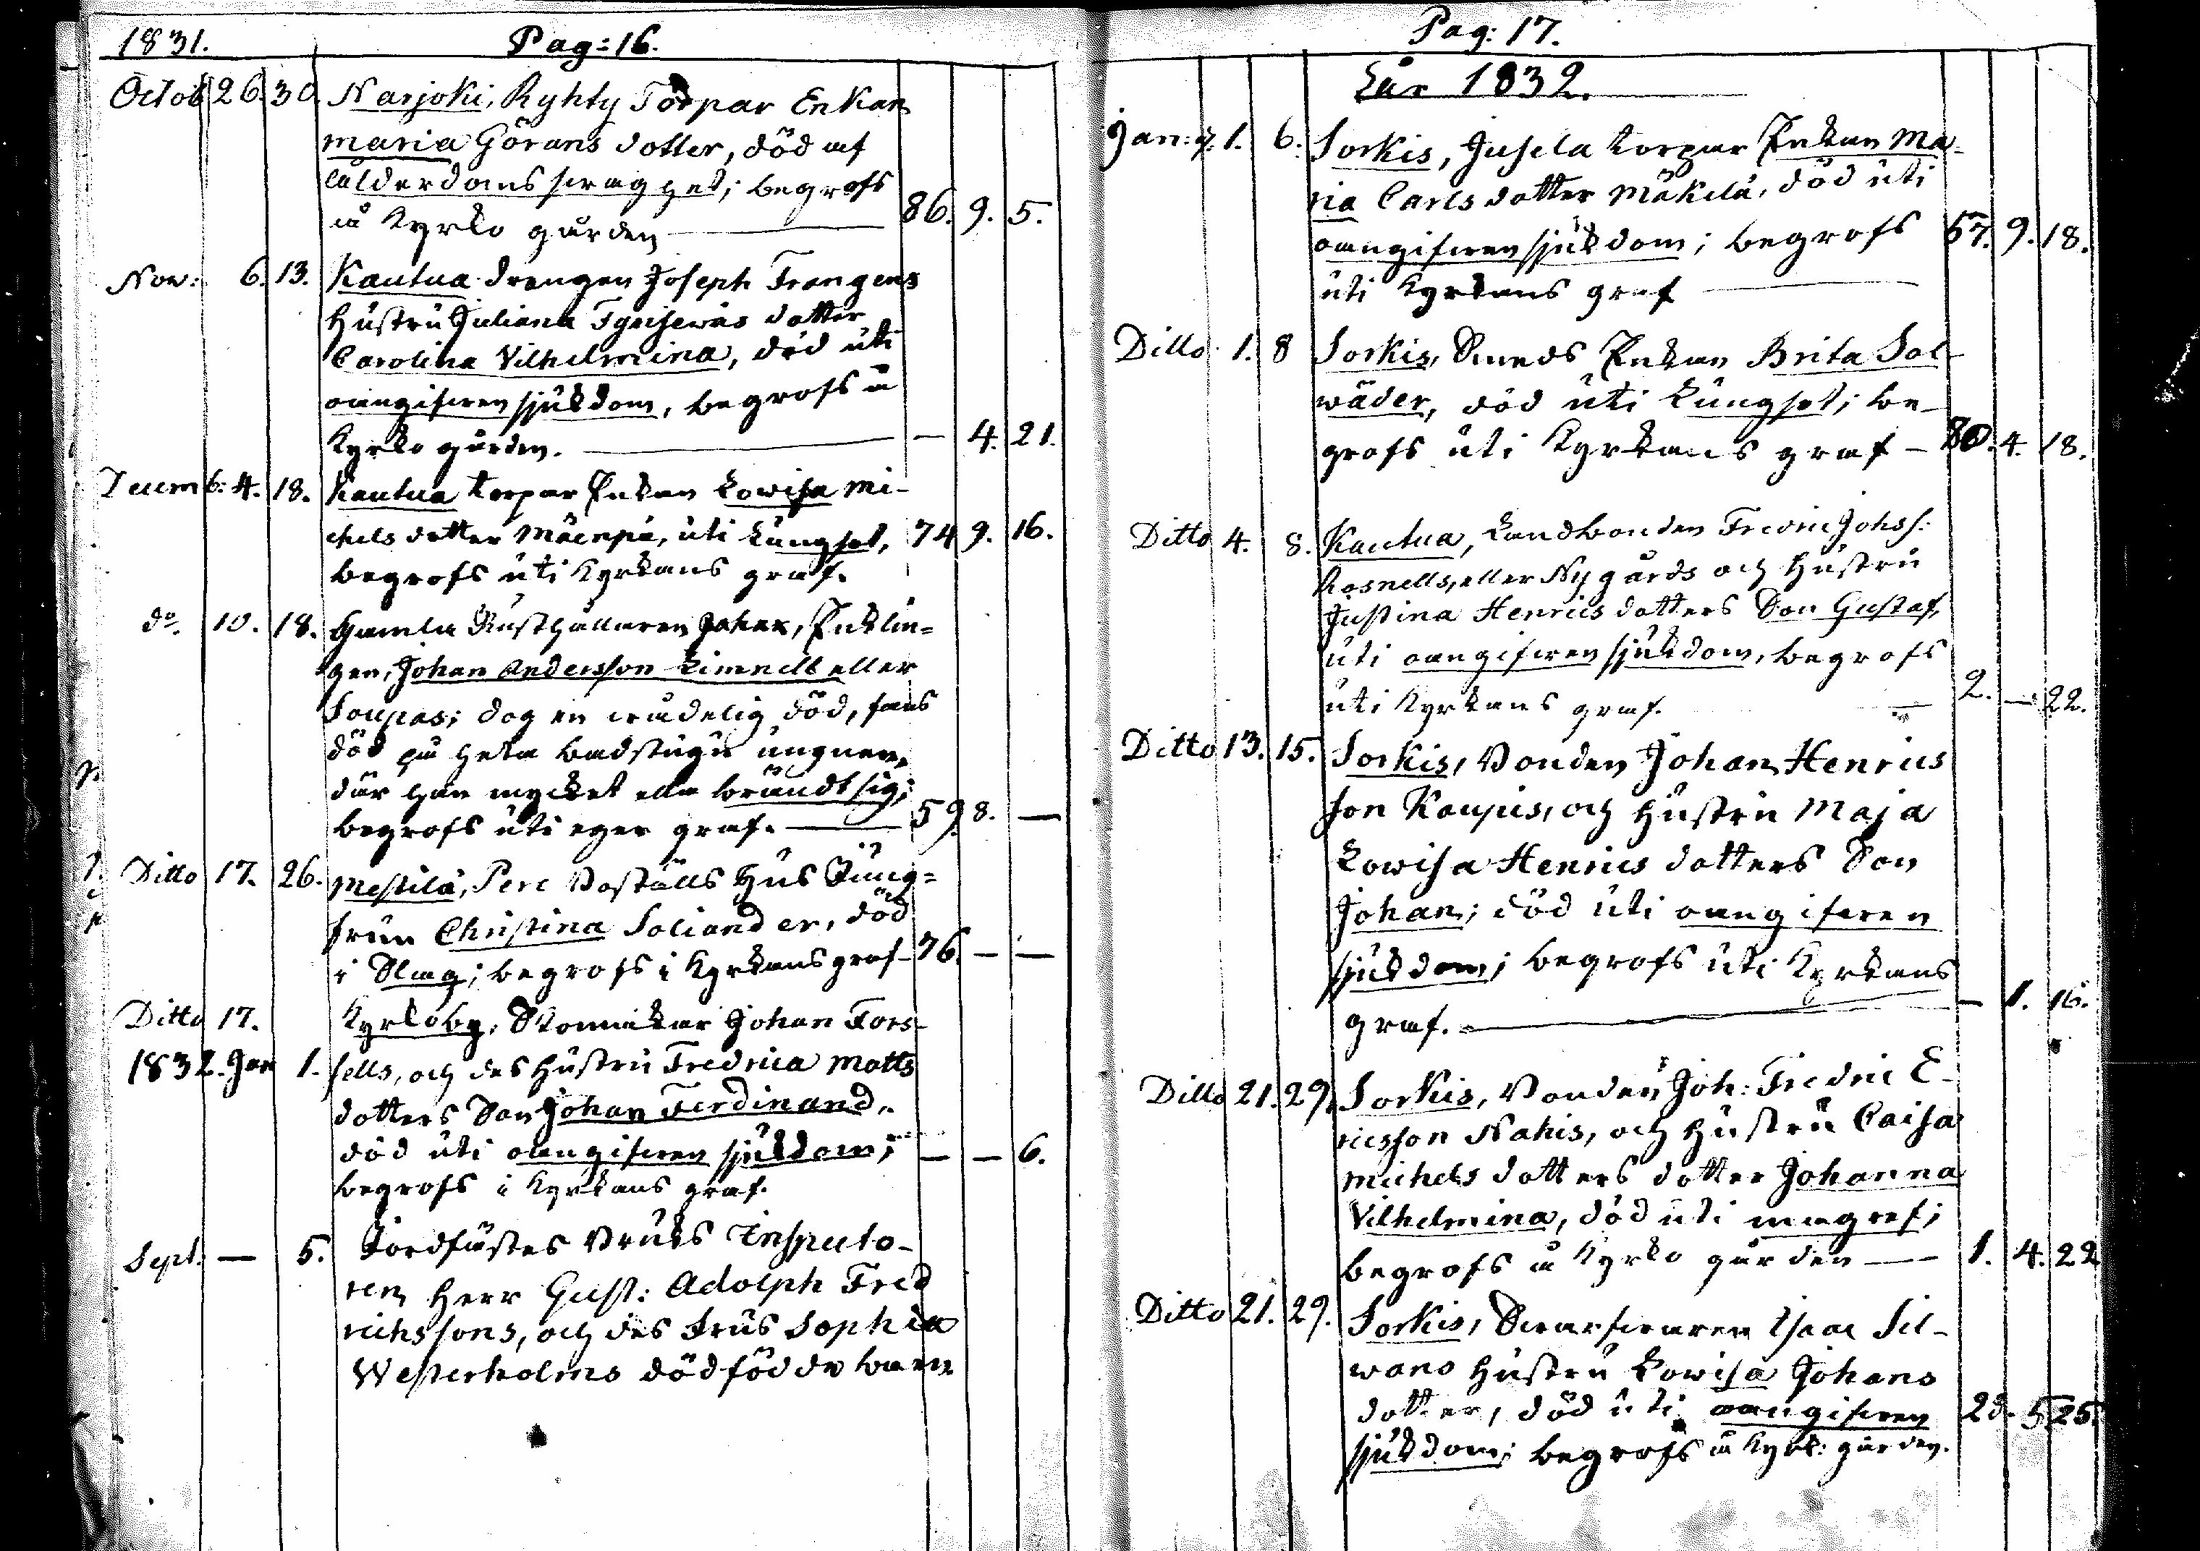 1831. Pag: 16.
Octob 26. 30. Narjoki, Ryhty Torpar Enkan
Maria Görans dotter, död af
ålderdoms swaghet; begrofs
å Kyrko gården — 86. 9. 5.
Nov: 6. 13. Kautua drengen Joseph Frangens
Hustru Juliana Dotter
Carolina Vilhelmina, död uti
oangifwen sjukdom, begrofs å
Kyrko gården. — — 4. 21.
Decemb: 4. 18. Kautua torpar Enkan Lowisa Mi-
chels dotter Mäenpä, uti Lungsot, 74 9. 16.
begrofs uti Kyrkans graf.
do. 10. 18. Gamla Rusthållaren Johan, Enklin=
gen, Johan Andersson Limnell eller
Soupas; dog en wådelig död, fans
död på heta badstugu ungnen,
där han mycket illa brändt sig;
begrofs uti egen graf. — 59. 8. —
Ditto 17. 26. Mestilä, Pere Boställs Hus Jung=
frun Christina Soliander, död
i Slag; begrofs i Kyrkans graf — 76. — —
Ditto 17. Kyrkoby, Skomakar Johan Fors-
1832. Jan 1. sells, och des Hustru Fredrica Matts
dotters Son Johan Ferdinand,
död uti oangifwen sjukdom; — — 6.
begrofs i Kyrkans graf.
Sept: — 5. Jordfästes Bruks Inspecto-
ren Herr Gust: Adolph Fred
richssons, och des Frus Sophia
Westerholms dödfödde barn
Pag: 17.
År 1832.
Jan: 1. 6. Sorkis, Jusela torpar Enkan Ma-
ria Carls dotter Mäkelä, död uti
oangifwen sjukdom; begrofs 57. 9. 18.
uti Kyrkans graf —
Ditto 1. 8 Sorkis, Smeds Enkan Brita Sol-
wäder, död uti Lungsot; be-
grofs uti Kyrkans graf — 80. 4. 18.
Ditto 4. 8. Kautua, Landbonden Fredric Johss:
Rosnells, eller Nygårds och Hustru
Justina Henrics dotters Son Gustaf,
uti oangifwen sjukdom, begrofs
uti Kyrkans graf. 2. — 22.
Ditto 13. 15. Sorkis, Bonden Johan Henrics
son Kaupis, och Hustru Maja
Lowisa Henrics dotters Son
Johan; död uti oangifwen
sjukdom; begrofs uti Kyrkans
graf. — — 1. 16.
Ditto 21. 29. Sorkis, Bonden Joh: Fredric E-
ricsson Nahis, och Hustru Caisa
Michels dotters dotter Johanna
Vilhelmina, död uti magref;
begrofs å Kyrko gården — 1. 4. 22
Ditto 21. 29. Sorkis, Swarfwaren Isaac Sil-
wans Hustru Lowisa Johans
dotter, död uti oangifwen 28. 5. 25.
sjukdom; begrofs å Kyrk: gården.